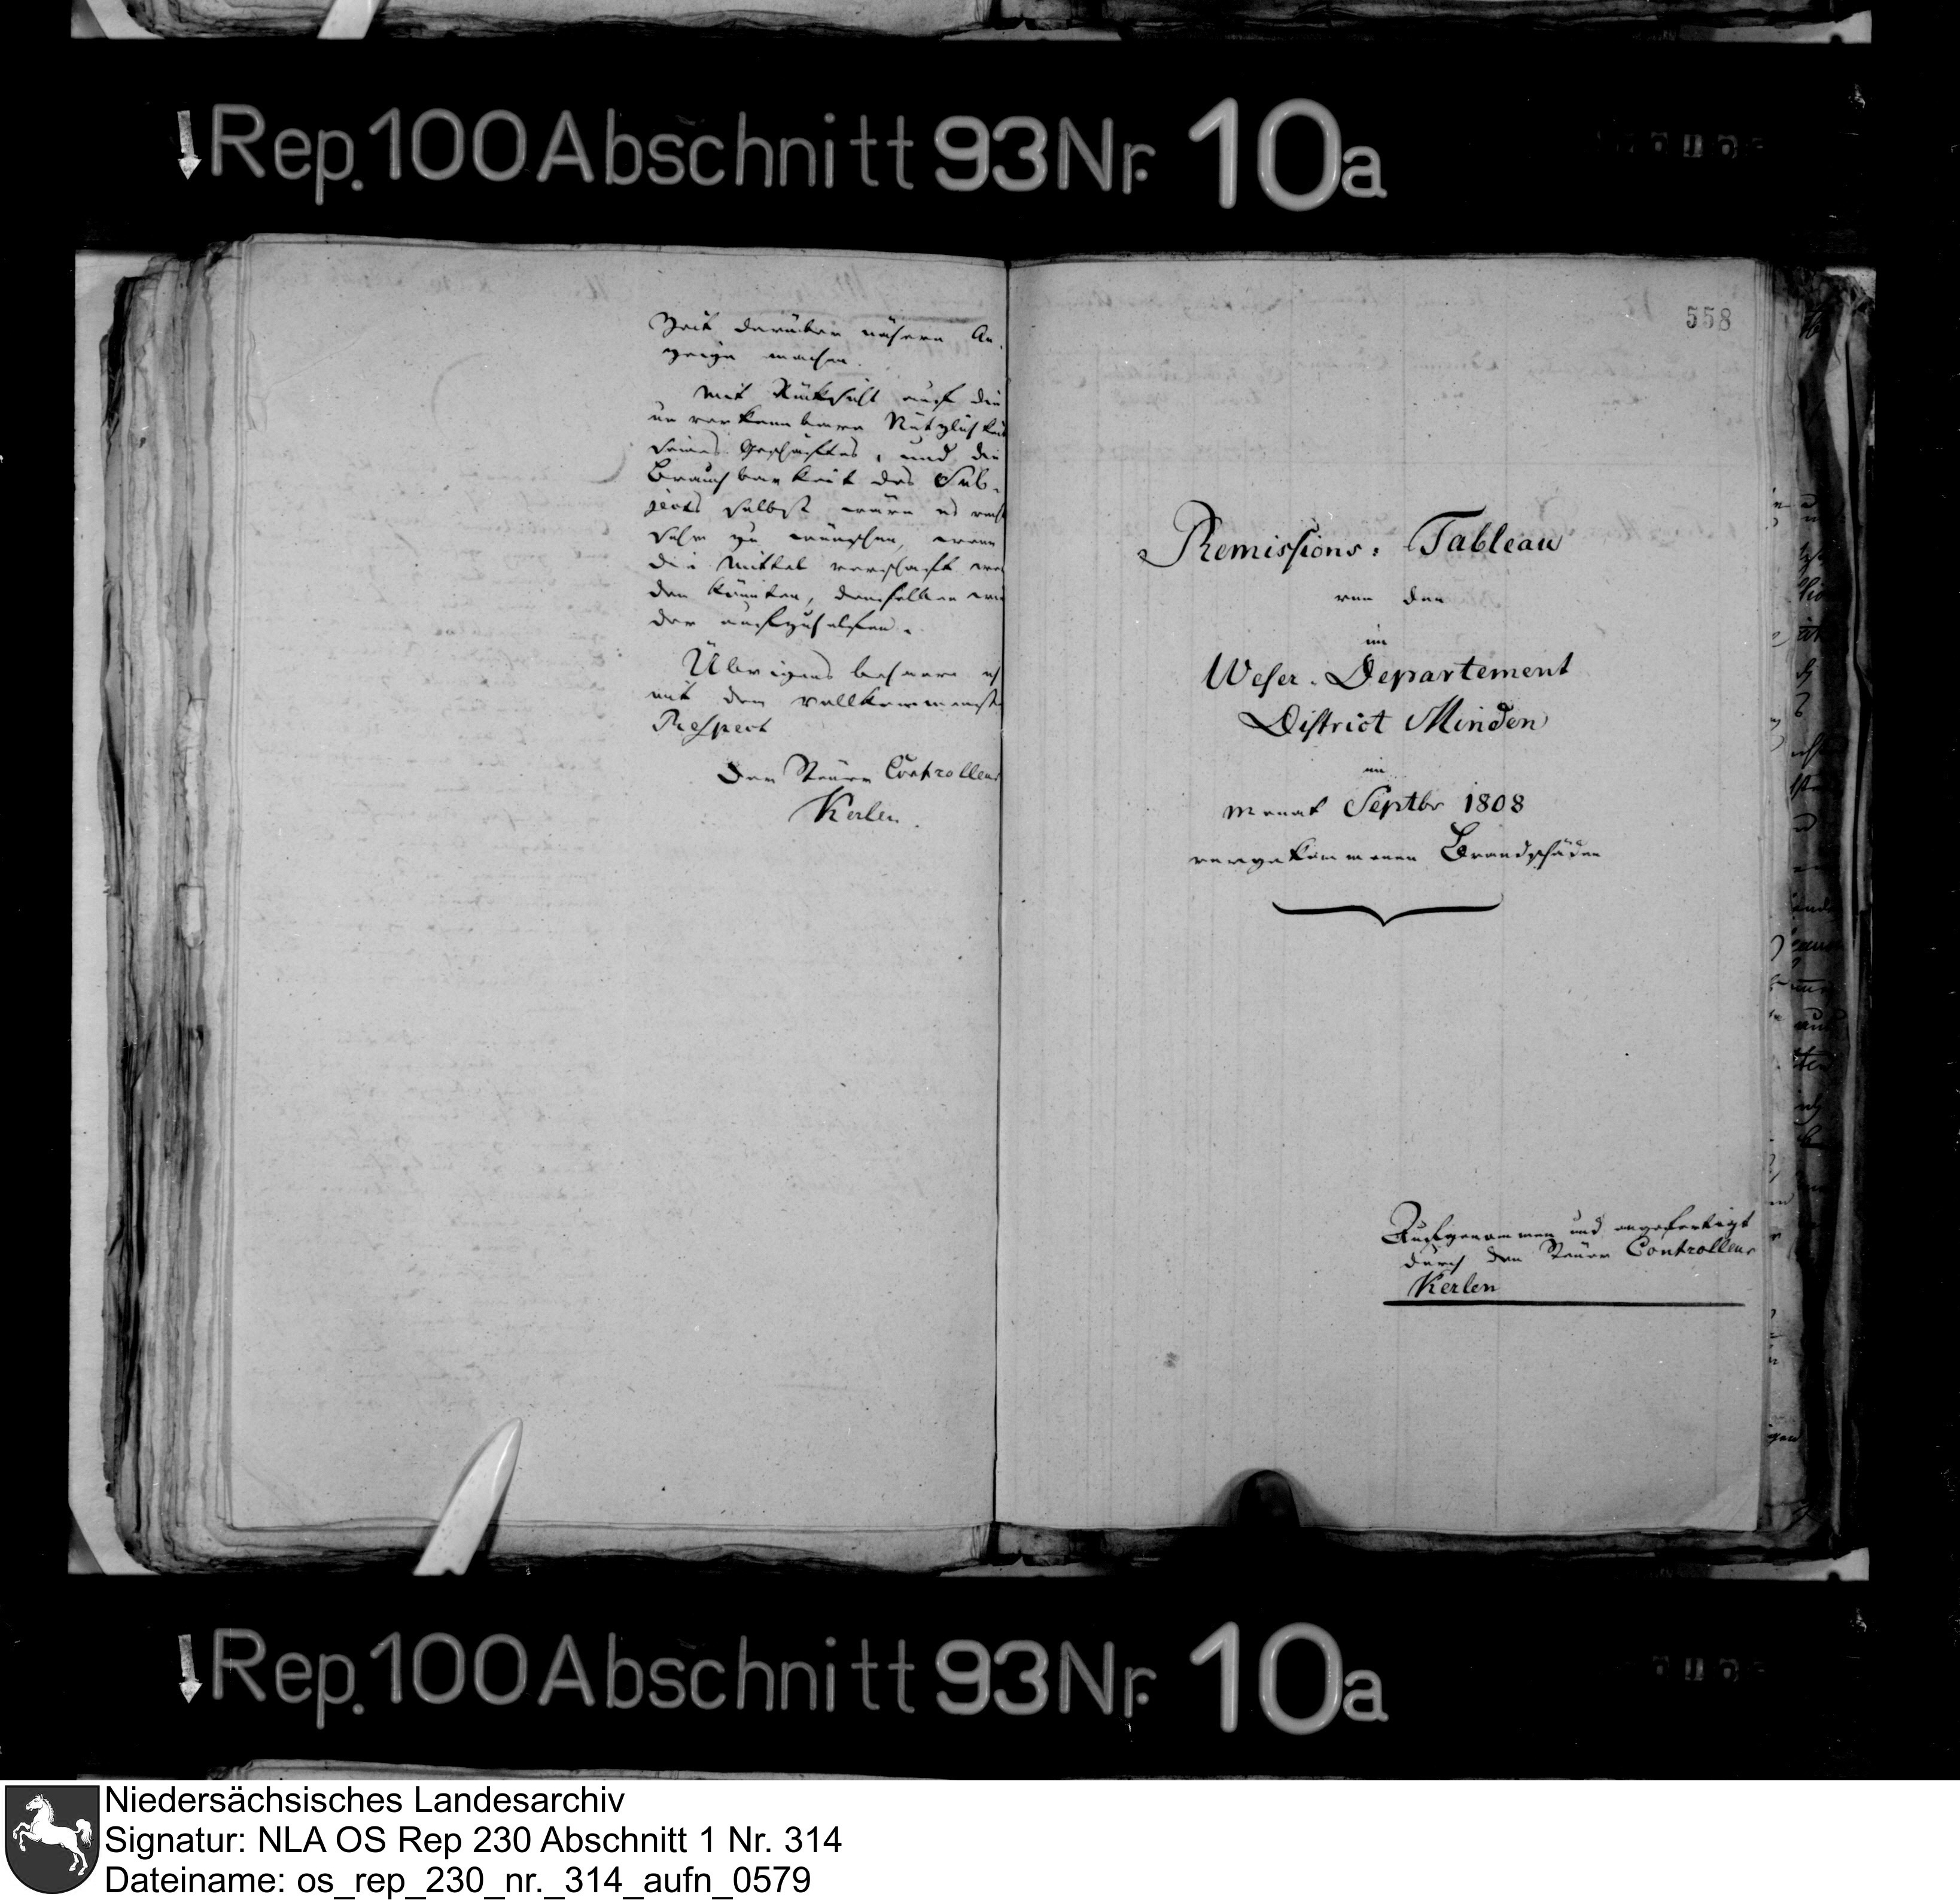 Rep. 100 Abschnitt 93 Nr. 10a
Zeit darüber nähere An-
zeige machen.
Mit Rücksicht auf die
unverkennbare Nützlichkeit
seines Geschäftes, und die
Brauchbarkeit des Sub-
jects selbst wäre es recht
sehr zu wünschen, wenn
die Mittel verschafft wer
den könnten, demselben wie
der aufzuhelfen.
Übrigens beharre ich
mit dem vollkommenst
Respect
Der Steuer Controlleur
Kerlen.
558
Remissions-Tableau
von den
im
Weser-Departement
District Minden
im
Monat Septbr 1808
vorgekommenen Brandschäden
Aufgenommen und angefertigt
durch den Steuer Controlleur
Kerlen
Rep. 100 Abschnitt 93 Nr. 10a
Niedersächsisches Landesarchiv
Signatur: NLA OS Rep 230 Abschnitt 1 Nr. 314
Dateiname: os_rep_230_nr._314_aufn_0579